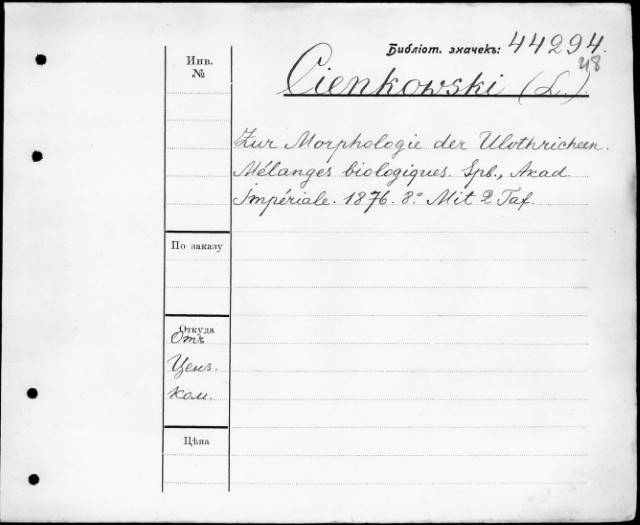 Библіот. значекъ: 44294.
Инв.
№
Cienkowski (L.).
Zur Morphologie der Ulothricheen.
Mélanges biologiques. Spb., Akad.
Impériale. 1876. 8.° Mit 2 Taf.
По заказу
Откуда
Отъ
Ценз.
ком.
Цѣна